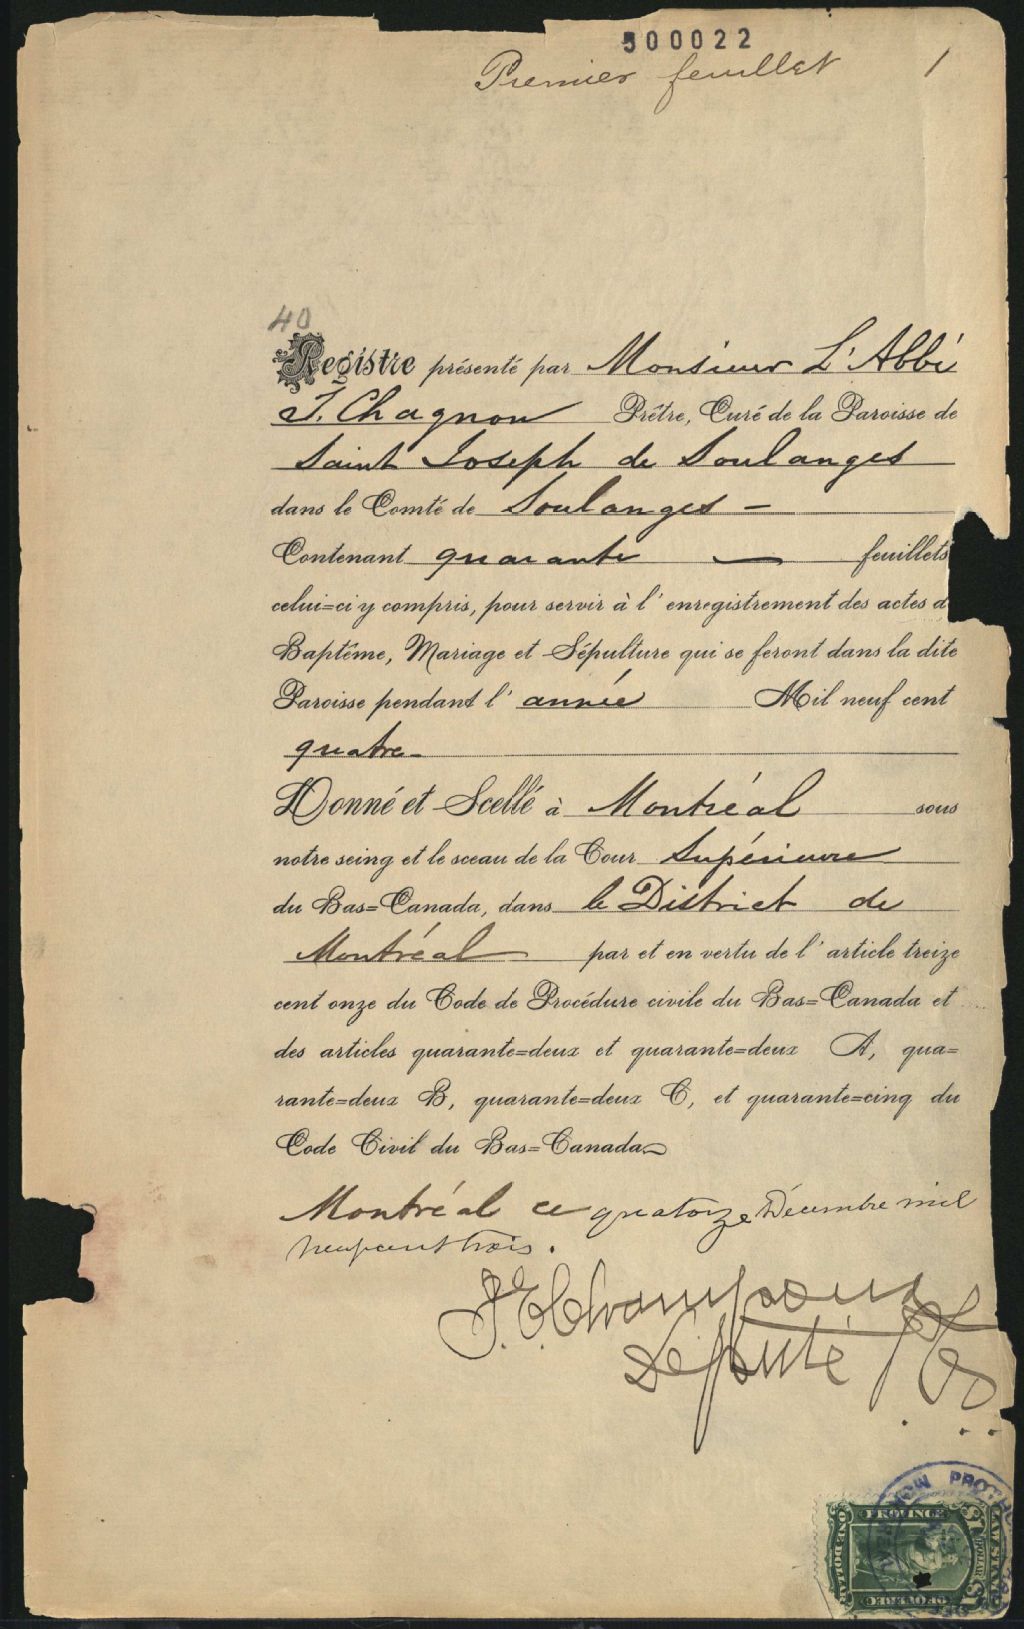 500022
Premier feuillet 1
40
Registre présenté par Monsieur L'Abbé
J. Chagnon Prêtre, Curé de la Paroisse de
Saint Joseph de Soulanges
dans le Comté de Soulanges –
Contenant quarante — feuillets
celui=ci y compris, pour servir à l'enregistrement des actes d
Baptême, Mariage et Sépulture qui se feront dans la dite
Paroisse pendant l'année Mil neuf cent
quatre
Donné et Scellé à Montréal sous
notre seing et le sceau de la Cour Supérieure
du Bas=Canada, dans le District de
Montréal par et en vertu de l'article treize
cent onze du Code de Procédure civile du Bas=Canada et
des articles quarante=deux et quarante=deux A, qua=
rante=deux B, quarante=deux C, et quarante=cinq du
Code Civil du Bas=Canada
Montréal ce quatorze Décembre mil
neuf cent trois.
Député
PROVINCE
LAW STAMP
ONE DOLLAR
QUEBEC